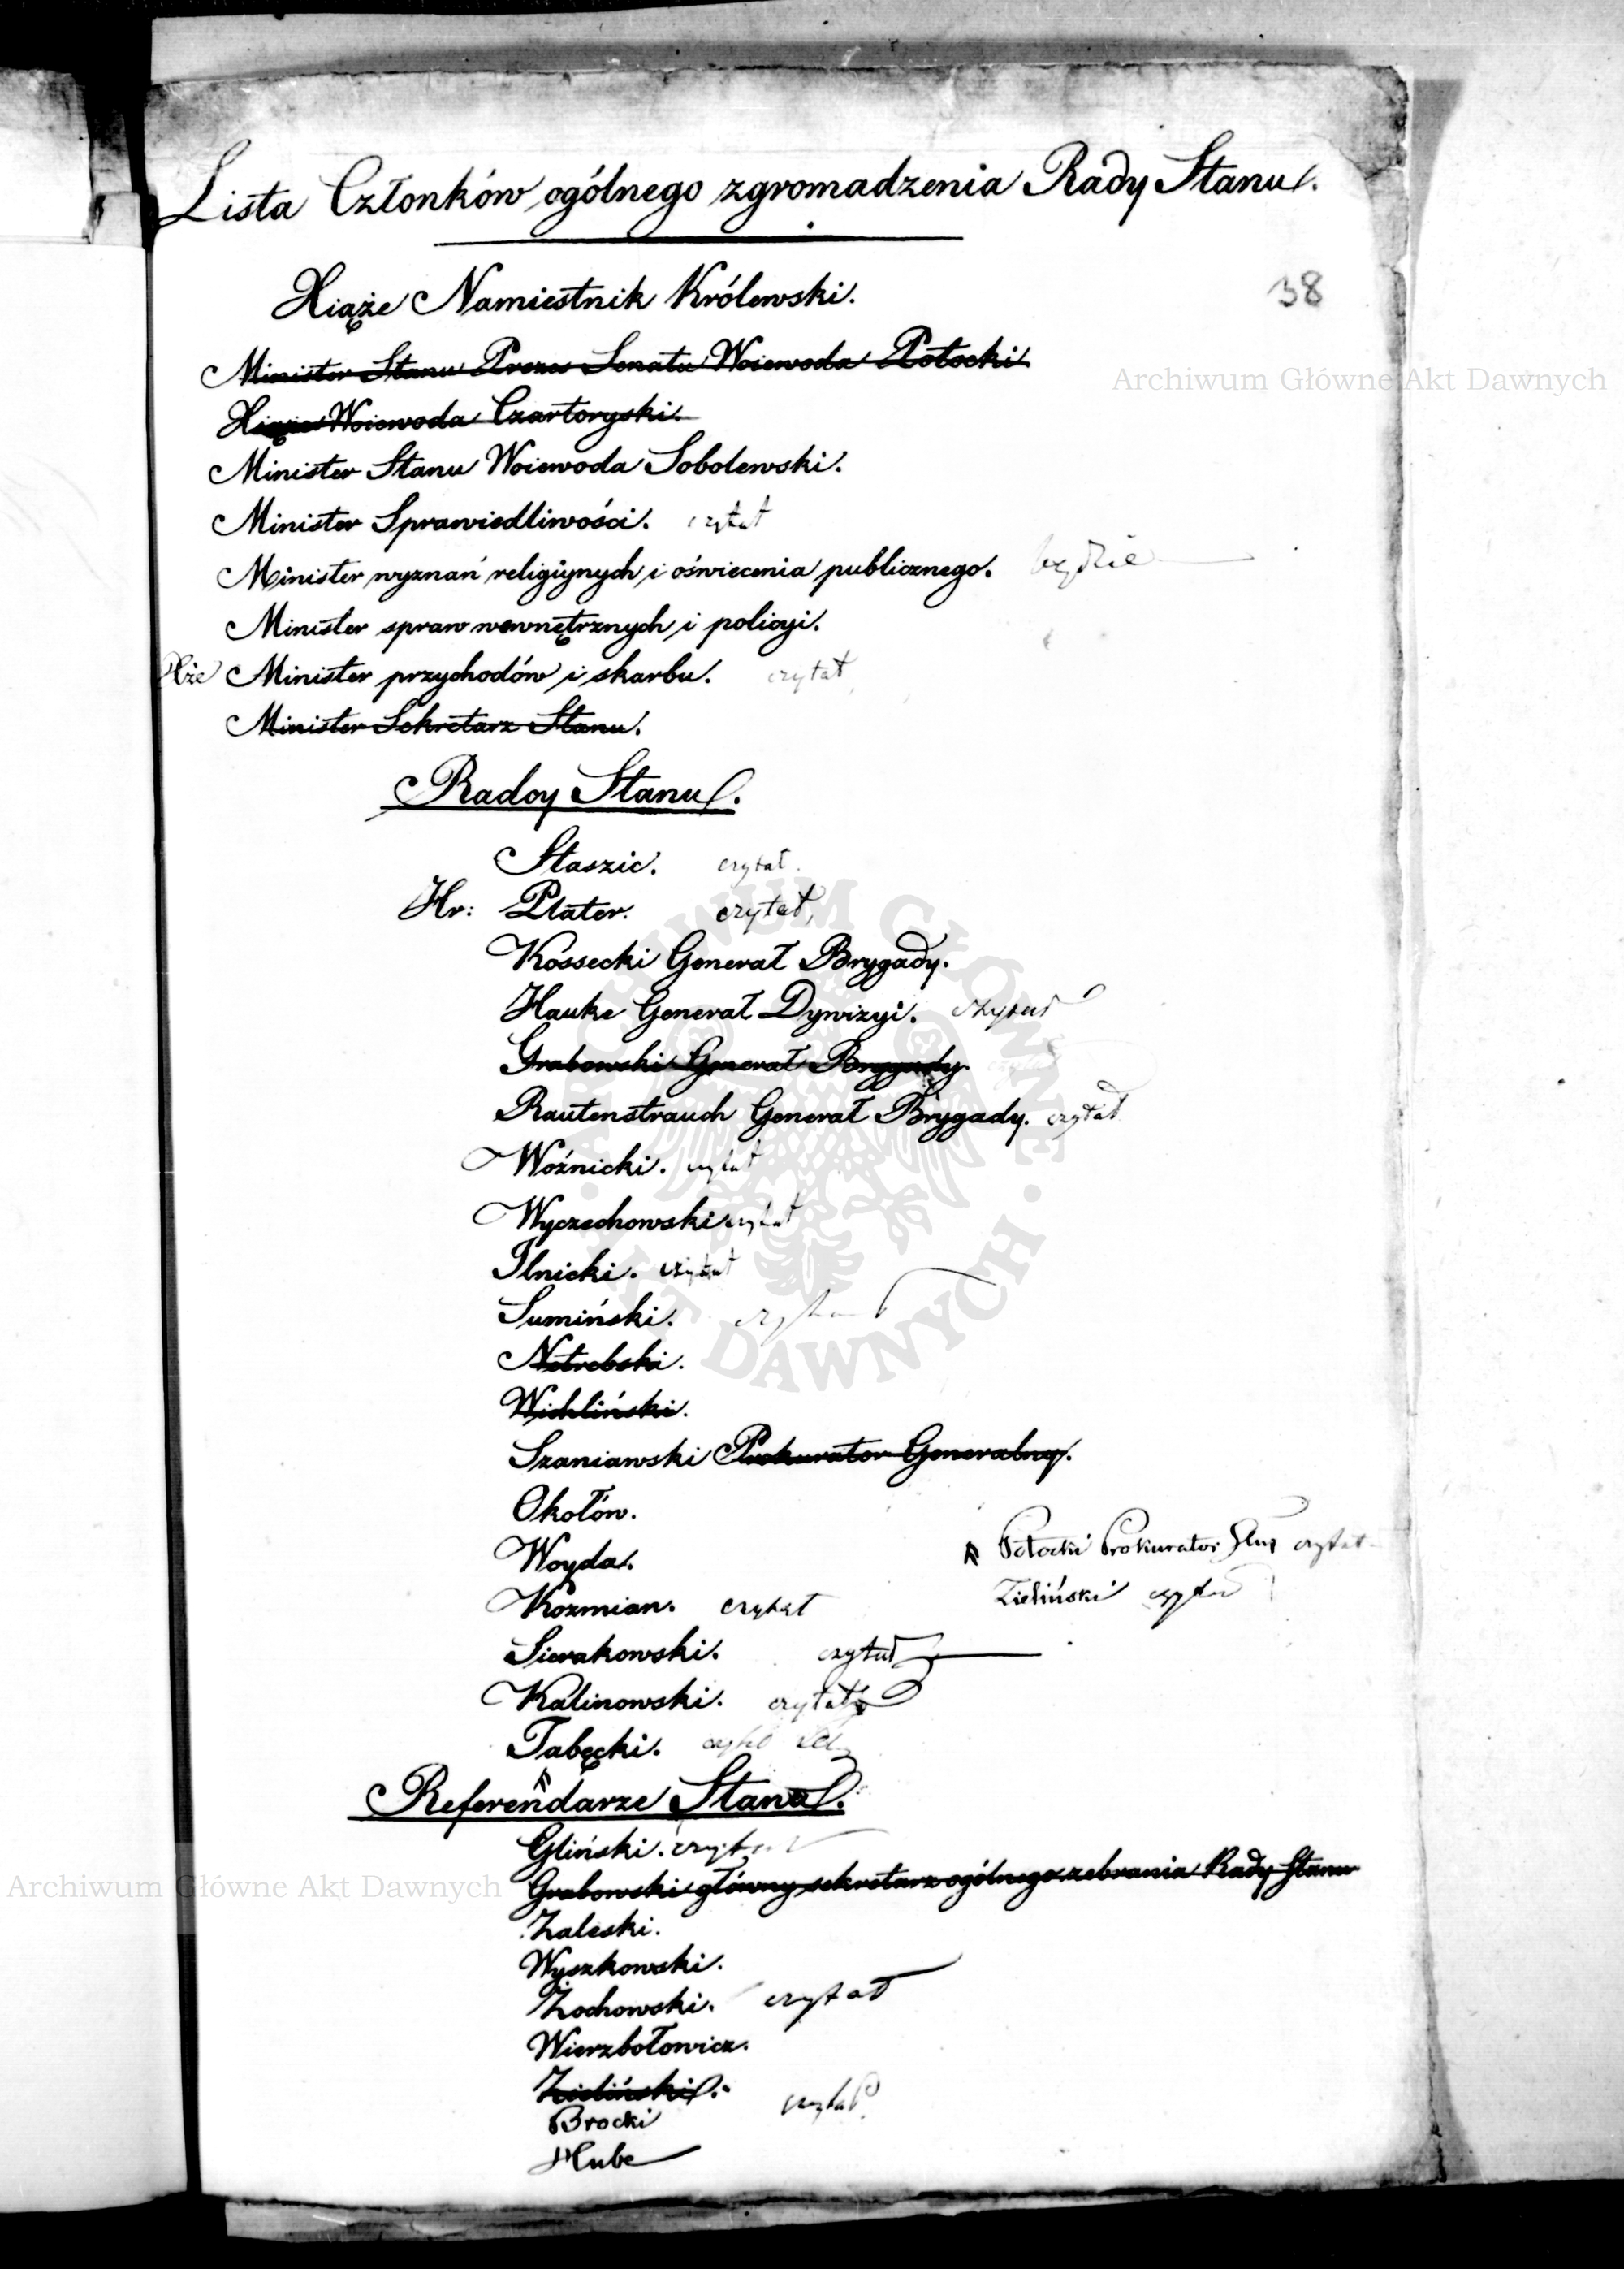 Lista Członków ogólnego zgromadzenia Rady Stanu.
38
Xiąże Namiestnik Królewski.
Minister Stanu Prezes Senatu Woiewoda Potocki
Xiąże Woiewoda Czartoryski.
Minister Stanu Woiewoda Sobolewski.
Minister Sprawiedliwości. czytał
Minister wyznań religijnych i oświecenia publicznego. będzie
Minister spraw wewnętrznych i policyi.
Xże Minister przychodów i skarbu. czytał
Minister Sekretarz Stanu.
Radcy Stanu.
Staszic. czytał.
Hr: Plater. czytał,
Kossecki Generał Brygady.
Hauke Generał Dywizyi. czytał
Grabowski Generał Brygady.
Rautenstrauch Generał Brygady. czytał
Woźnicki. czytał
Wyczechowski czytał
Ilnicki. czytał
Sumiński. czytał
Netrebski.
Wichliński.
Szaniawski Prokurator Generalny.
Okołów.
Woyda.
Potocki Prokurator czytał
Koźmian. czytał
Zieliński czytał
Sierakowski. czytał
Kalinowski. czytał
Tabęcki.
Referendarze Stanu.
Gliński. czytał
Grabowski główny sekretarz ogólnego zebrania Rady Stanu
Zaleski.
Wyszkowski.
Żochowski. czytał
Wierzbołowicz.
Zieliński.
Brocki czytał
Hube
Archiwum Główne Akt Dawnych
Archiwum Główne Akt Dawnych
ARCHIWUM GŁÓWNE AKT DAWNYCH